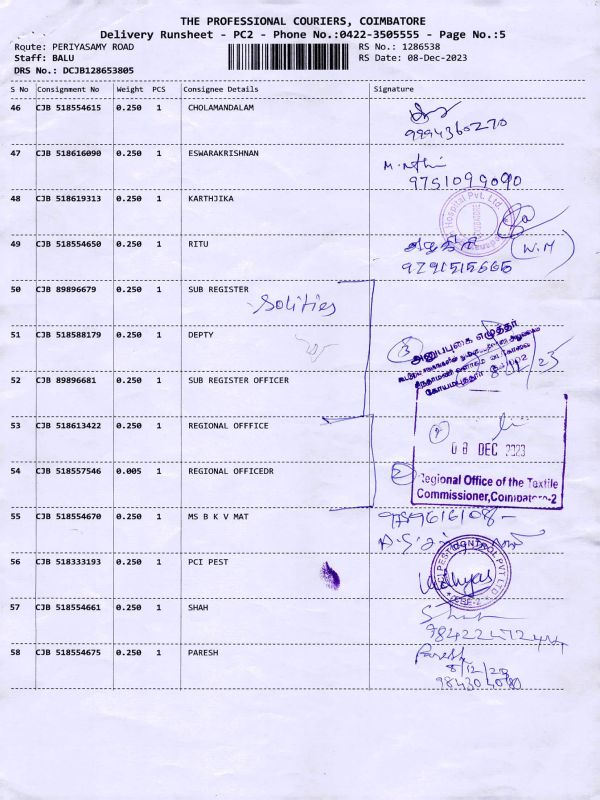 THE PROFESSIONAL COURIERS, COIMBATORE
Delivery Runsheet - PC2 - Phone No.:0422-3505555 - Page No.:5
Route: PERIYASAMY ROAD
RS No.: 1286538
Staff: BALU
RS Date: 08-Dec-2023
DRS No.: DCJB128653805
S No Consignment No Weight PCS Consignee Details Signature
46 CJB 518554615 0.250 1 CHOLAMANDALAM
9994360270
47 CJB 518616090 0.250 1 ESWARAKRISHNAN
9751099090
48 CJB 518619313 0.250 1 KARTHJIKA
Hospital Pvt. Ltd.
49 CJB 518554650 0.250 1 RITU
(W.M)
9291515665
50 CJB 89896679 0.250 1 SUB REGISTER
51 CJB 518588179 0.250 1 DEPTY
3
அனுபபுகை எழுத்தர்
52 CJB 89896681 0.250 1 SUB REGISTER OFFICER
53 CJB 518613422 0.250 1 REGIONAL OFFFICE
08 DEC 2023
54 CJB 518557546 0.005 1 REGIONAL OFFICEDR
2
Regional Office of the Textile
Commissioner, Coimbatore-2
55 CJB 518554670 0.250 1 MS B K V MAT
56 CJB 518333193 0.250 1 PCI PEST
PCI PEST CONTROL PVT LTD
Vidhyas
57 CJB 518554661 0.250 1 SHAH
58 CJB 518554675 0.250 1 PARESH
Paresh
8/12/23